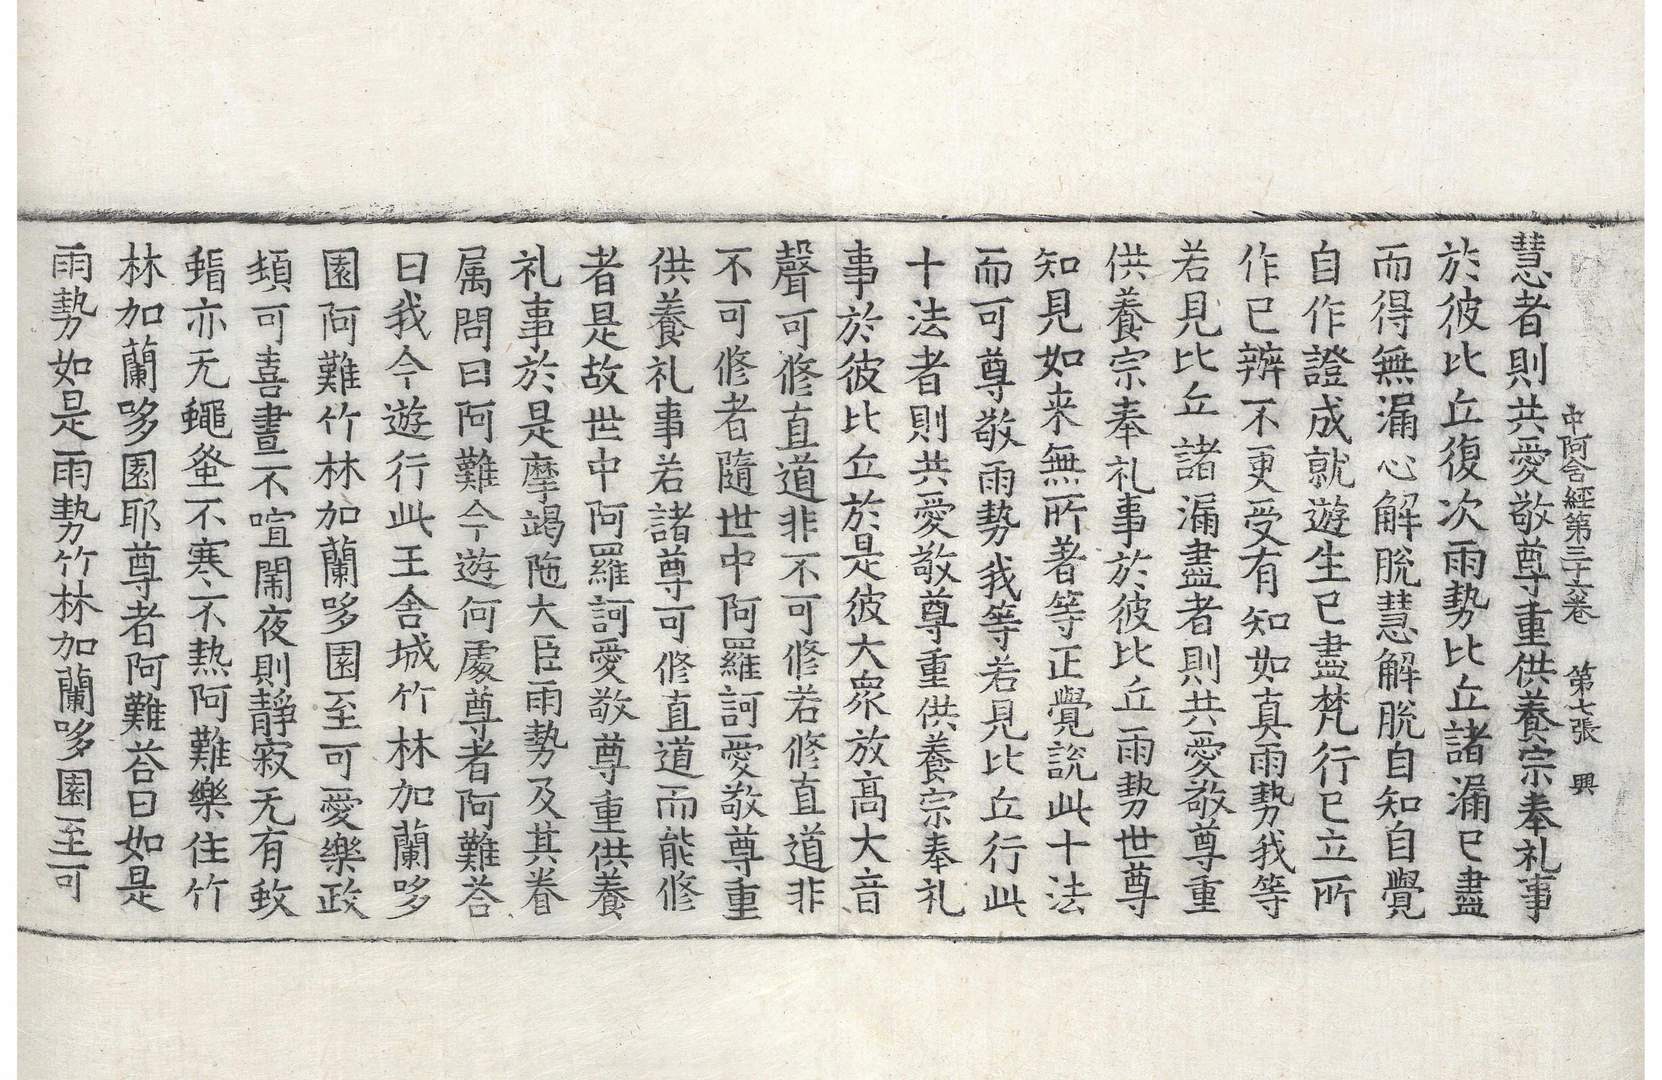 中阿含經第三十六卷 第七張 興
慧者則共愛敬尊重供養宗奉礼事
於彼比丘復次雨勢比丘諸漏已盡
而得無漏心解脫慧解脫自知自覺
自作證成就遊生已盡梵行已立所
作已辦不更受有知如真雨勢我等
若見比丘諸漏盡者則共愛敬尊重
供養宗奉礼事於彼比丘雨勢世尊
知見如来無所著等正覺說此十法
而可尊敬雨勢我等若見比丘行此
十法者則共愛敬尊重供養宗奉礼
事於彼比丘於是彼大衆放高大音
聲可修直道非不可修若修直道非
不可修者隨世中阿羅訶愛敬尊重
供養礼事若諸尊可修直道而能修
者是故世中阿羅訶愛敬尊重供養
礼事於是摩竭陁大臣雨勢及其眷
属問曰阿難今遊何處尊者阿難荅
曰我今遊行此王舍城竹林加蘭哆
園阿難竹林加蘭哆園至可愛樂政
頓可喜晝不喧閙夜則靜寂无有蚊
䖟亦无蠅蚤不寒不熱阿難樂住竹
林加蘭哆園耶尊者阿難荅曰如是
雨勢如是雨勢竹林加蘭哆園至可